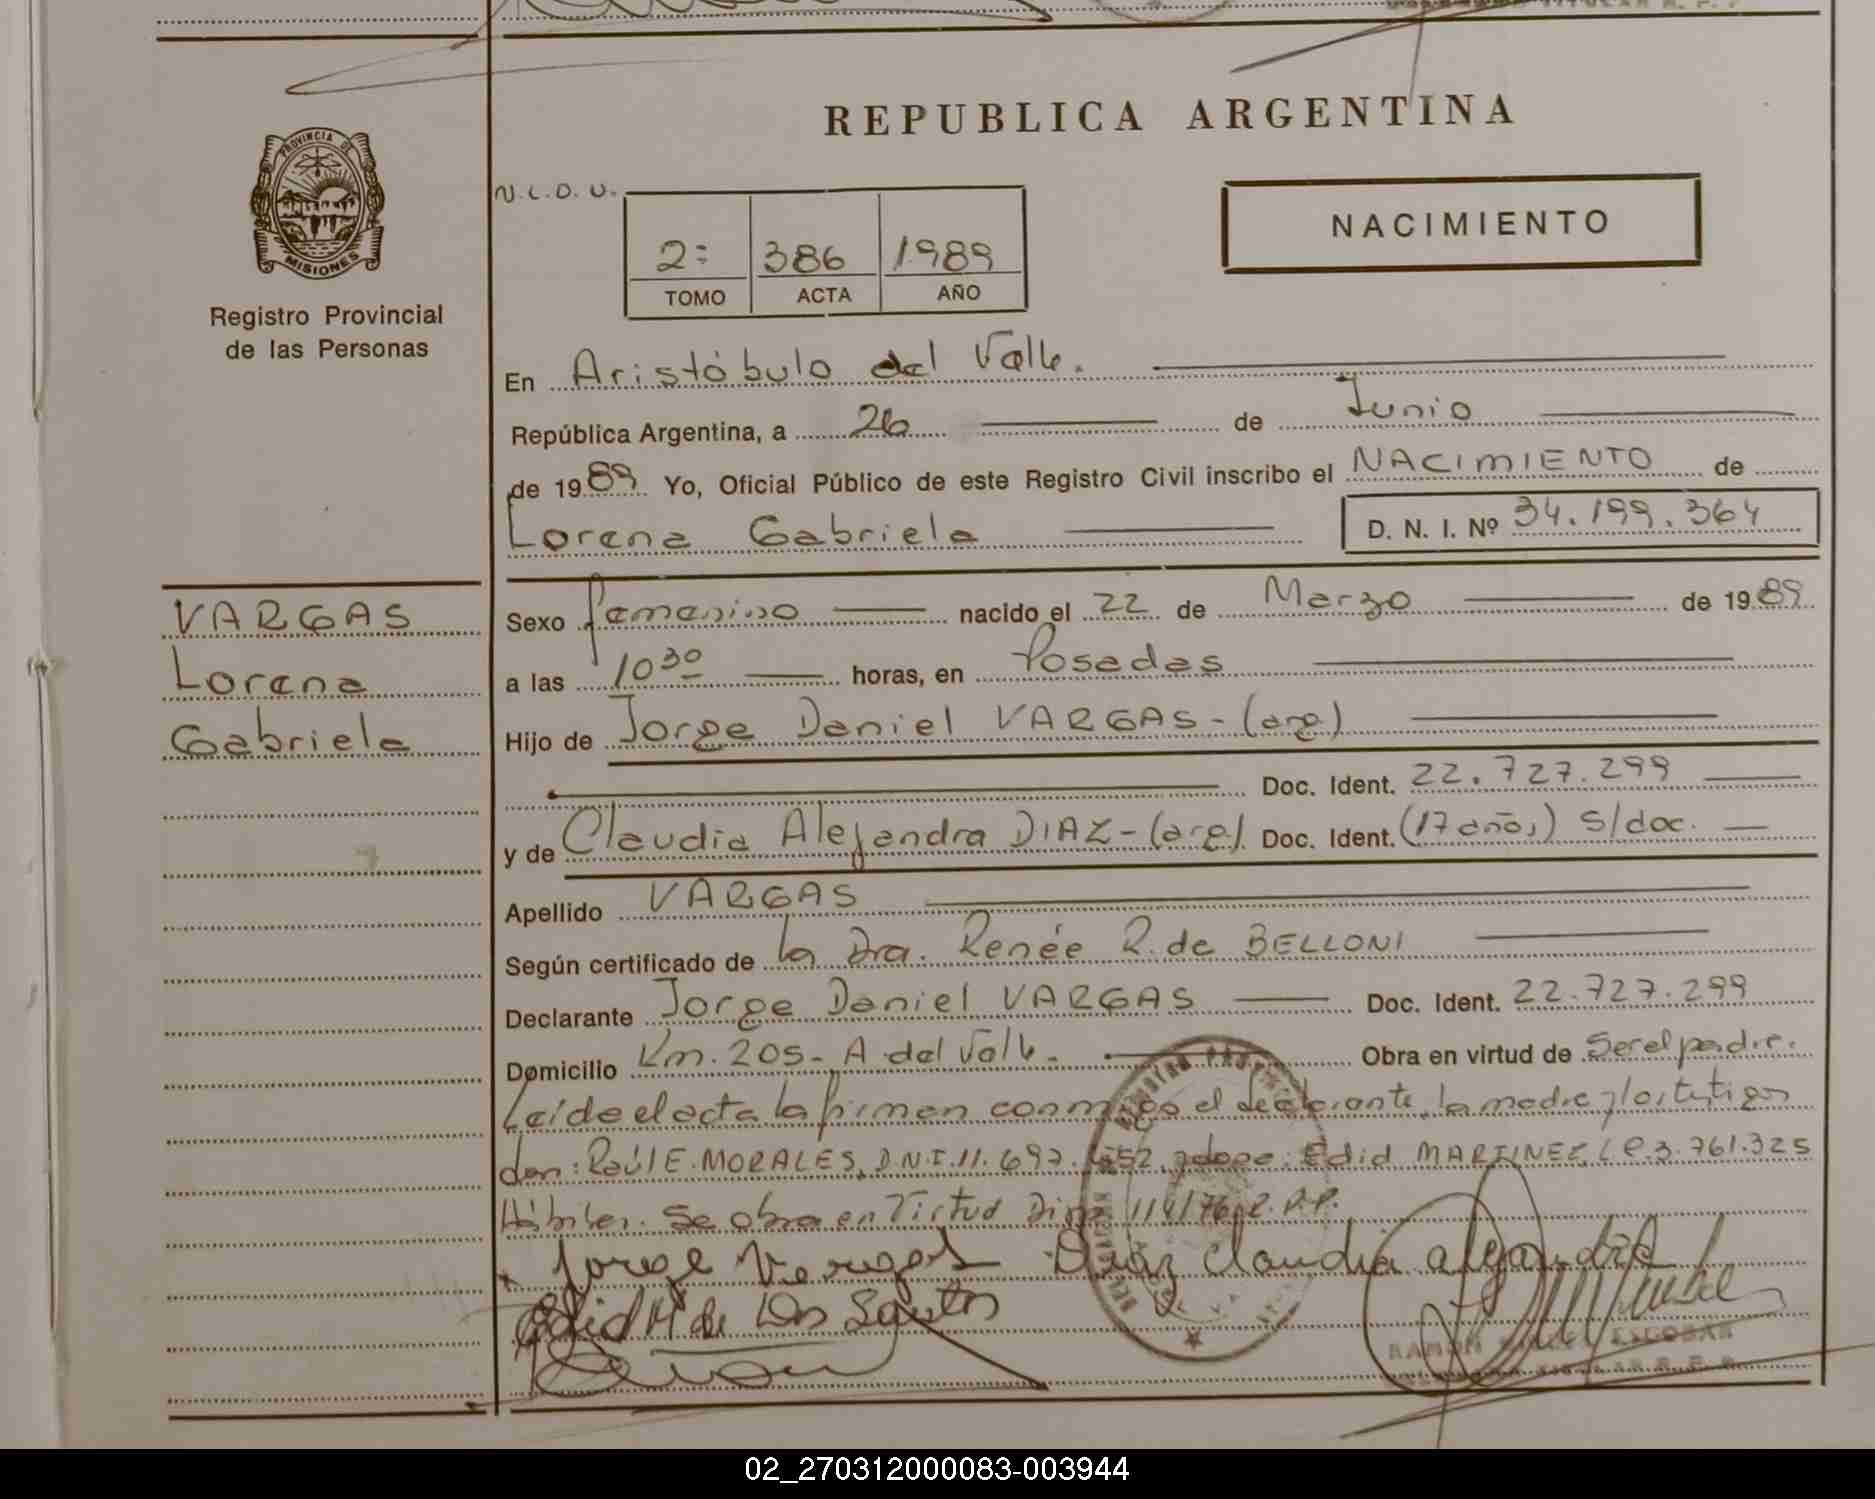 REPUBLICA ARGENTINA
PROVINCIA DE
MISIONES
Registro Provincial
de las Personas
N.L.O.U.
2: 386 1989
TOMO ACTA AÑO
NACIMIENTO
En Aristóbulo del Valle.
República Argentina, a 26 de Junio
de 1989 Yo, Oficial Público de este Registro Civil inscribo el NACIMIENTO de
Lorena Gabriela D. N. I. Nº 34.199.364
VARGAS
Lorena
Gabriela
Sexo femenino nacido el 22 de Marzo de 1989
a las 10 30 horas, en Posadas
Hijo de Jorge Daniel VARGAS-(arg)
Doc. Ident. 22.727.299
y de Claudia Alejandra DIAZ-(arg). Doc. Ident. (17 años) s/doc.
Apellido VARGAS
Según certificado de la Dra. Renée R. de BELLONI
Declarante Jorge Daniel VARGAS Doc. Ident. 22.727.299
Domicilio Km. 205- A. del Valle. Obra en virtud de Ser el padre.
Leída el acta la firman conmigo el declarante, la madre y los testigos
don: Raúl E. MORALES, D.N.I. 11.697. y doña: Edid MARTINEZ, 3.761.325
Hábiles. Se obra en Virtud 114/76
Jorge Vargas Diaz Claudia
Edid M de Dos Santos
RAMON ESCOBAR
02_270312000083-003944